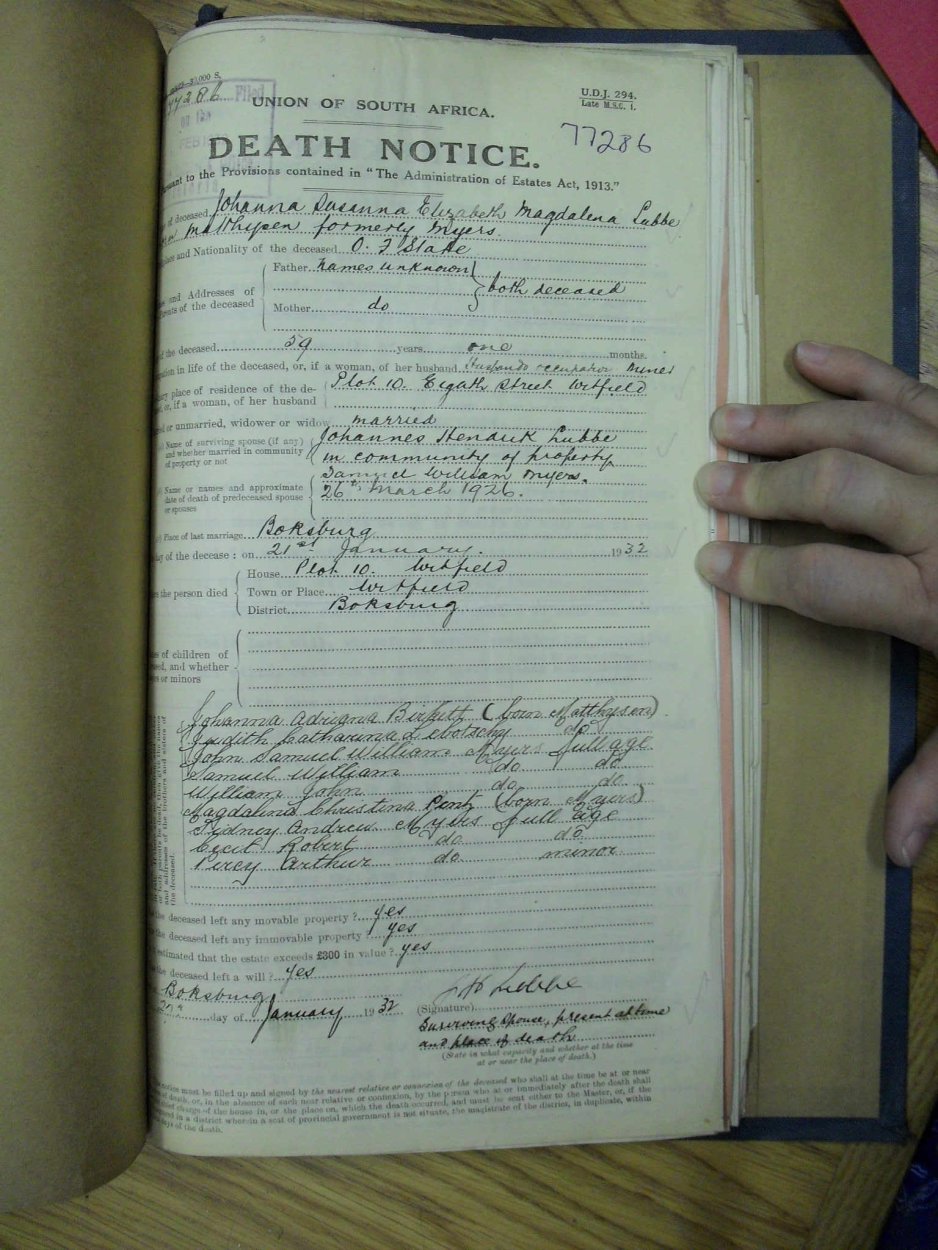 30,000 S.
77286 Filed
on the
FEB
UNION OF SOUTH AFRICA.
U.D.J. 294.
Late M.S.C. 1.
77286
DEATH NOTICE.
to the Provisions contained in "The Administration of Estates Act, 1913."
of deceased Johanna Susanna Elizabeth Magdalena Lubbe
formerly Myers
and Nationality of the deceased O. F State
Father Names unknown
both deceased
and Addresses of
of the deceased
Mother do
the deceased 59 years one months.
in life of the deceased, or, if a woman, of her husband Husbands occupation Miner
place of residence of the de-
or, if a woman, of her husband
Plot 10. Eigath Street Witfield
or unmarried, widower or widow married
Name of surviving spouse (if any)
and whether married in community
of property or not
Johannes Hendrik Lubbe
in community of property
Samuel William Myers.
Name or names and approximate
date of death of predeceased spouse
or spouses
26th March 1926.
Place of last marriage Boksburg
of the decease: on 21st January. 1932
the person died
House Plot 10. Witfield
Town or Place Witfield
District Boksburg
of children of
and whether
or minors
Johanna Adriana Birkett (born Matthysen)
Judith Catharina do
John Samuel William Myers full age
Samuel William do do
William John do do
Magdalena Christina Pent (born Myers)
Sydney Andrew Myers full age
Cecil Robert do do
Percy Arthur do minor
and addresses of the brothers and sisters of
the deceased.
the deceased left any movable property? yes
the deceased left any immovable property? yes
estimated that the estate exceeds £300 in value? yes
the deceased left a will? yes
Boksburg
day of January 1932
J H Lubbe
(Signature)
Surviving Spouse, present at time
and place of death
(State in what capacity and whether at the time
at or near the place of death.)
notice must be filled up and signed by the nearest relative or connexion of the deceased who shall at the time be at or near
of death, or, in the absence of such near relative or connexion, by the person who at or immediately after the death shall
charge of the house in, or the place on, which the death occurred, and must be sent either to the Master, or, if the
in a district wherein a seat of provincial government is not situate, the magistrate of the district, in duplicate, within
days of the death.